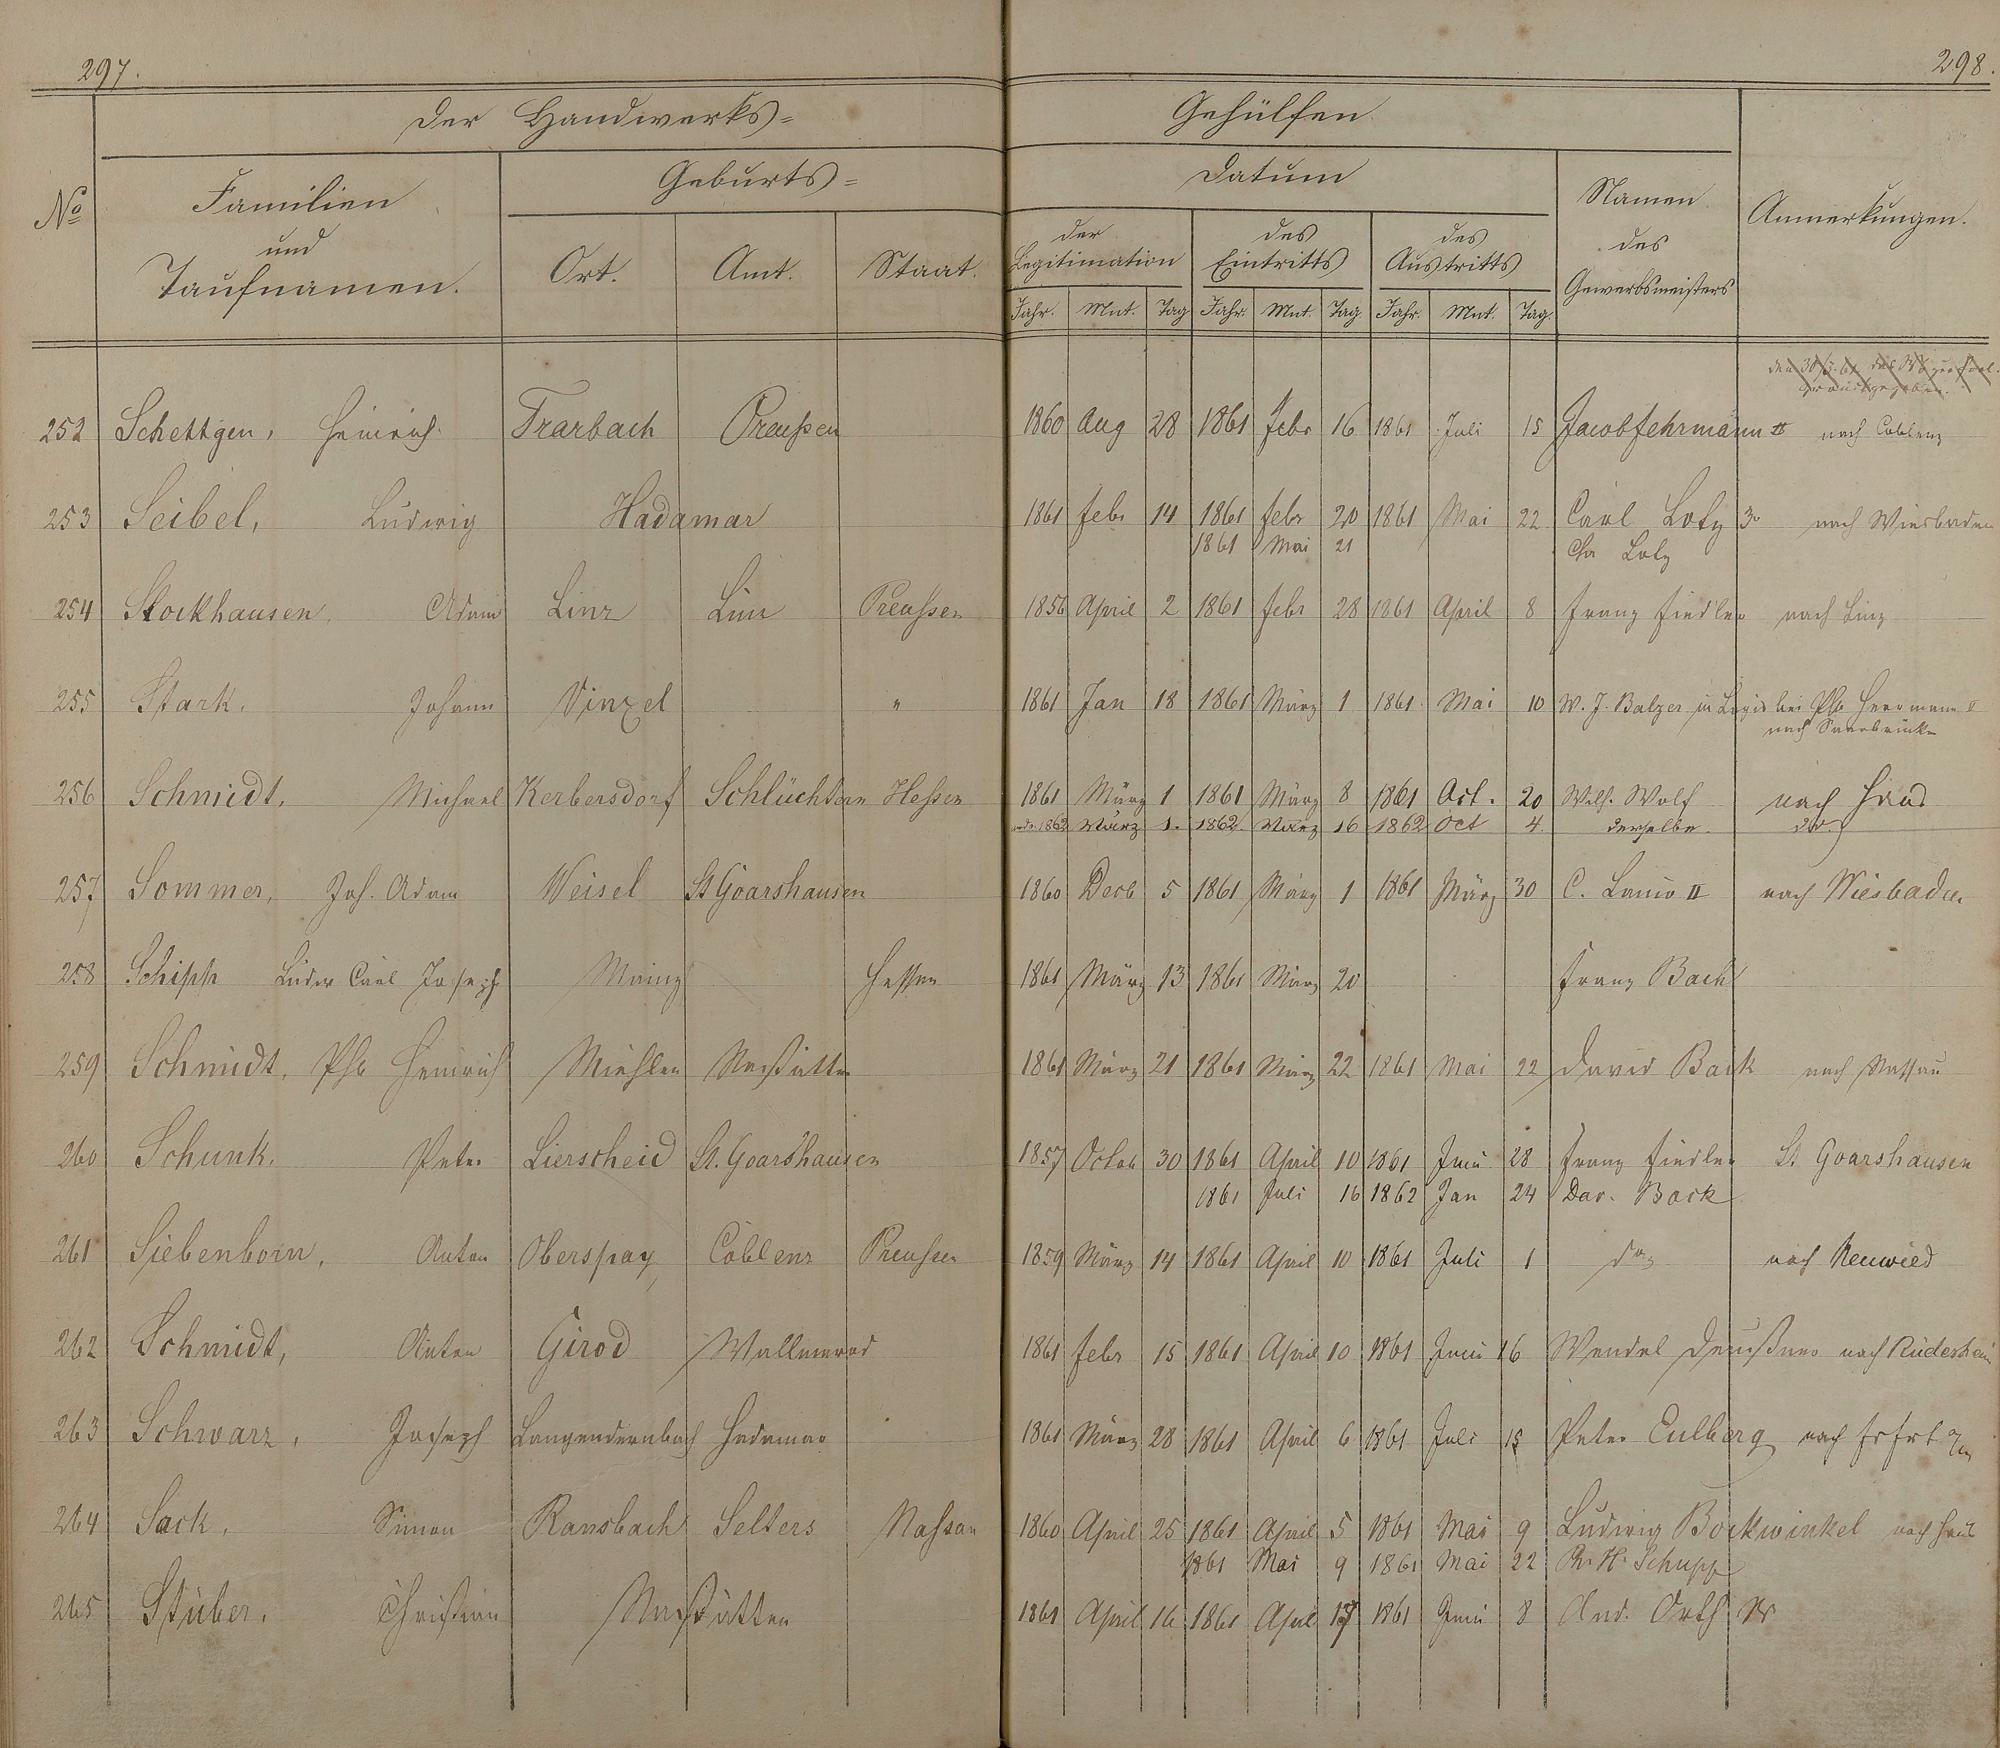 297.
298.
Der Handwerks=
Gehülfen
No
Familien
und
Taufnamen.
Geburts=
Ort. Amt. Staat.
Datum
der
Legitimation
des
Eintritts
des
Austritts
Jahr. Mnt. Tag Jahr. Mnt. Tag Jahr. Mnt. Tag.
Namen
des
Gewerbsmeisters
Anmerkungen.
252 Schettgen, Heinrich Trarbach Preußen 1860 Aug 28 1861 Febr 16 1861 Juli 15 Jacob Fehrmann II nach Coblenz
253 Seibel, Ludwig Hadamar 1861 Febr 14 1861 Febr 20 1861 Mai 22 Carl Lotz nach Wiesbaden
1861 Mai 21 Lotz
254 Stockhausen, Adam Linz Linz Preußen 1856 April 2 1861 Febr 28 1861 April 8 Franz Fiedler nach Linz
255 Stark, Johann Vinxel " 1861 Jan 18 1861 März 1 1861 Mai 10 W. J. Balzer in Logis bei Ph. Herrmann II
nach Saarbrücken
256 Schmidt, Michael Kerbersdorf Schlüchtern Heßen 1861 März 1 1861 März 8 1861 Oct. 20 Wilh. Wolf nach Haus
1862 März 1. 1862. März 16 1862 Oct 4. derselbe. do.
257 Sommer, Joh. Adam Weisel St Goarshausen 1860 Decb 5 1861 März 1 1861 März 30 C. Lanio II nach Wiesbaden
258 Schipp Carl Joseph Mainz Hessen 1861 März 13 1861 März 20 Franz Bach
259 Schmidt, Ph. Heinrich Miehlen Nastätten 1861 März 21 1861 März 22 1861 Mai 22 David Back nach Nassau
260 Schunk, Peter Lierscheid St. Goarshausen 1857 Octob 30 1861 April 10 1861 Juni 28 Franz Fiedler St Goarshausen
1861 Juli 16 1862 Jan 24 Dav. Back
261 Siebenborn, Anton Oberspay Coblenz Preußen 1859 März 14 1861 April 10 1861 Juli 1 do nach Neuwied
262 Schmidt, Anton Girod Wallmerod 1861 Febr 15 1861 April 10 1861 Juni 16 Wendel nach Rüdesheim
263 Schwarz, Joseph Langendernbach Hadamar 1861 März 28 1861 April 6 1861 Juli 15 Peter Eulberg nach Frfrt a/m
264 Sack, Simon Ransbach Selters Naßau 1860 April 25 1861 April 5 1861 Mai 9 Ludwig Bockwinkel nach Haus
1861 Mai 9 1861 Mai 22 H. Schupp
265 Stüber, Christian Nastätten 1861 April 16 1861 April 17 1861 Juni 8 And. Orth